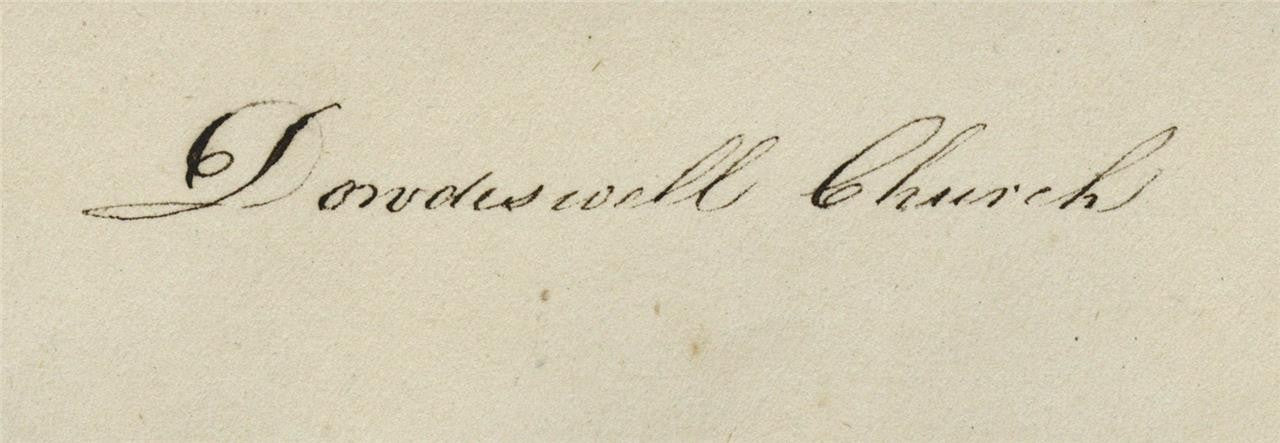 Dowdeswell Church